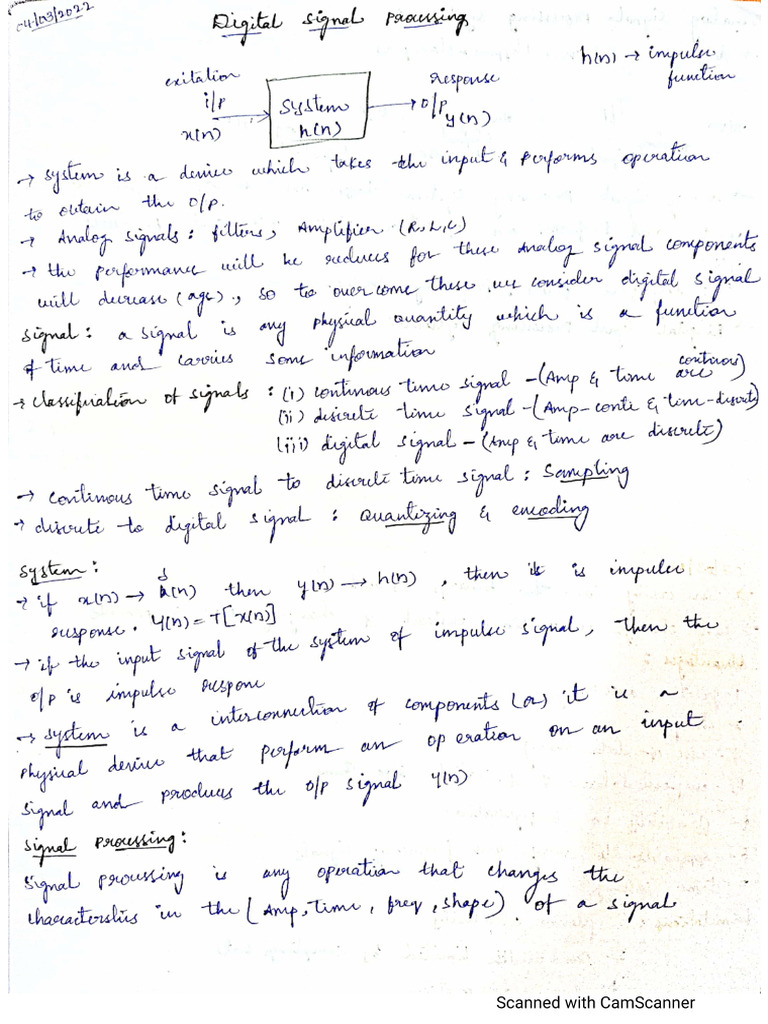 04/03/2022
Digital Signal Processing
h(n) → impulse
function
exitation
i/p
x(n)
System
h(n)
response
o/p
y(n)
→ System is a device which takes the input & performs operation
to obtain the o/p.
→ Analog signals : filters, Amplifier (R, L, C)
→ the performance will be reduces for these Analog signal components
will decrease (age)., so to overcome these we consider digital signal
Signal : a signal is any physical quantity which is a function
of time and carries some information
→ classification of signals : (i) continous time signal - (Amp & time are continous)
(ii) discrete time signal - (Amp-conti & time-discrete)
(iii) digital signal - (Amp & time are discrete)
→ continous time signal to discrete time signal : Sampling
→ discrete to digital signal : Quantizing & encoding
System :
→ if x(n) → δ(n) then y(n) → h(n) , then it is impulse
response. y(n) = T[x(n)]
→ if the input signal of the system of impulse signal, then the
o/p is impulse respone
→ System is a interconnection of components (or) it is a
physical device that perform an operation on an input
signal and produces the o/p signal y(n)
Signal Processing :
Signal processing is any operation that changes the
characterstics in the (Amp, Time, freq, shape) of a signal
Scanned with CamScanner